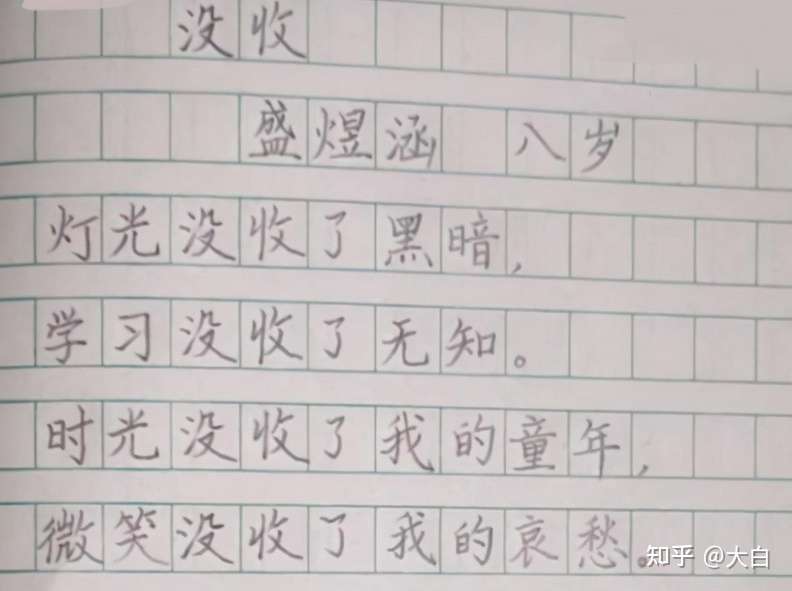 没收
盛煜涵 八岁
灯光没收了黑暗,
学习没收了无知。
时光没收了我的童年,
微笑没收了我的哀愁。
知乎 @大白